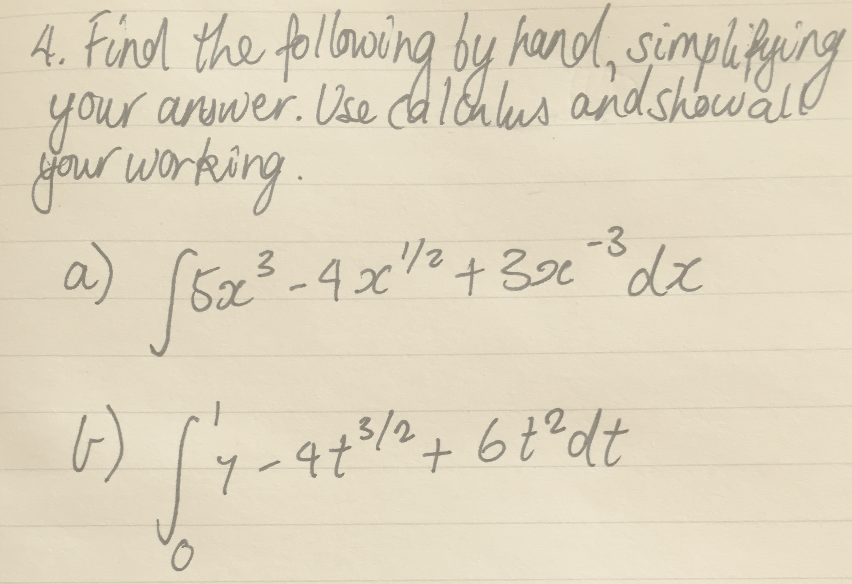 4. Find the following by hand, simplifying
your answer. Use calculus and show all
your working.
a) ∫5x³ - 4x^(1/2) + 3x^(-3) dx
b) ∫₀¹ y - 4t^(3/2) + 6t² dt